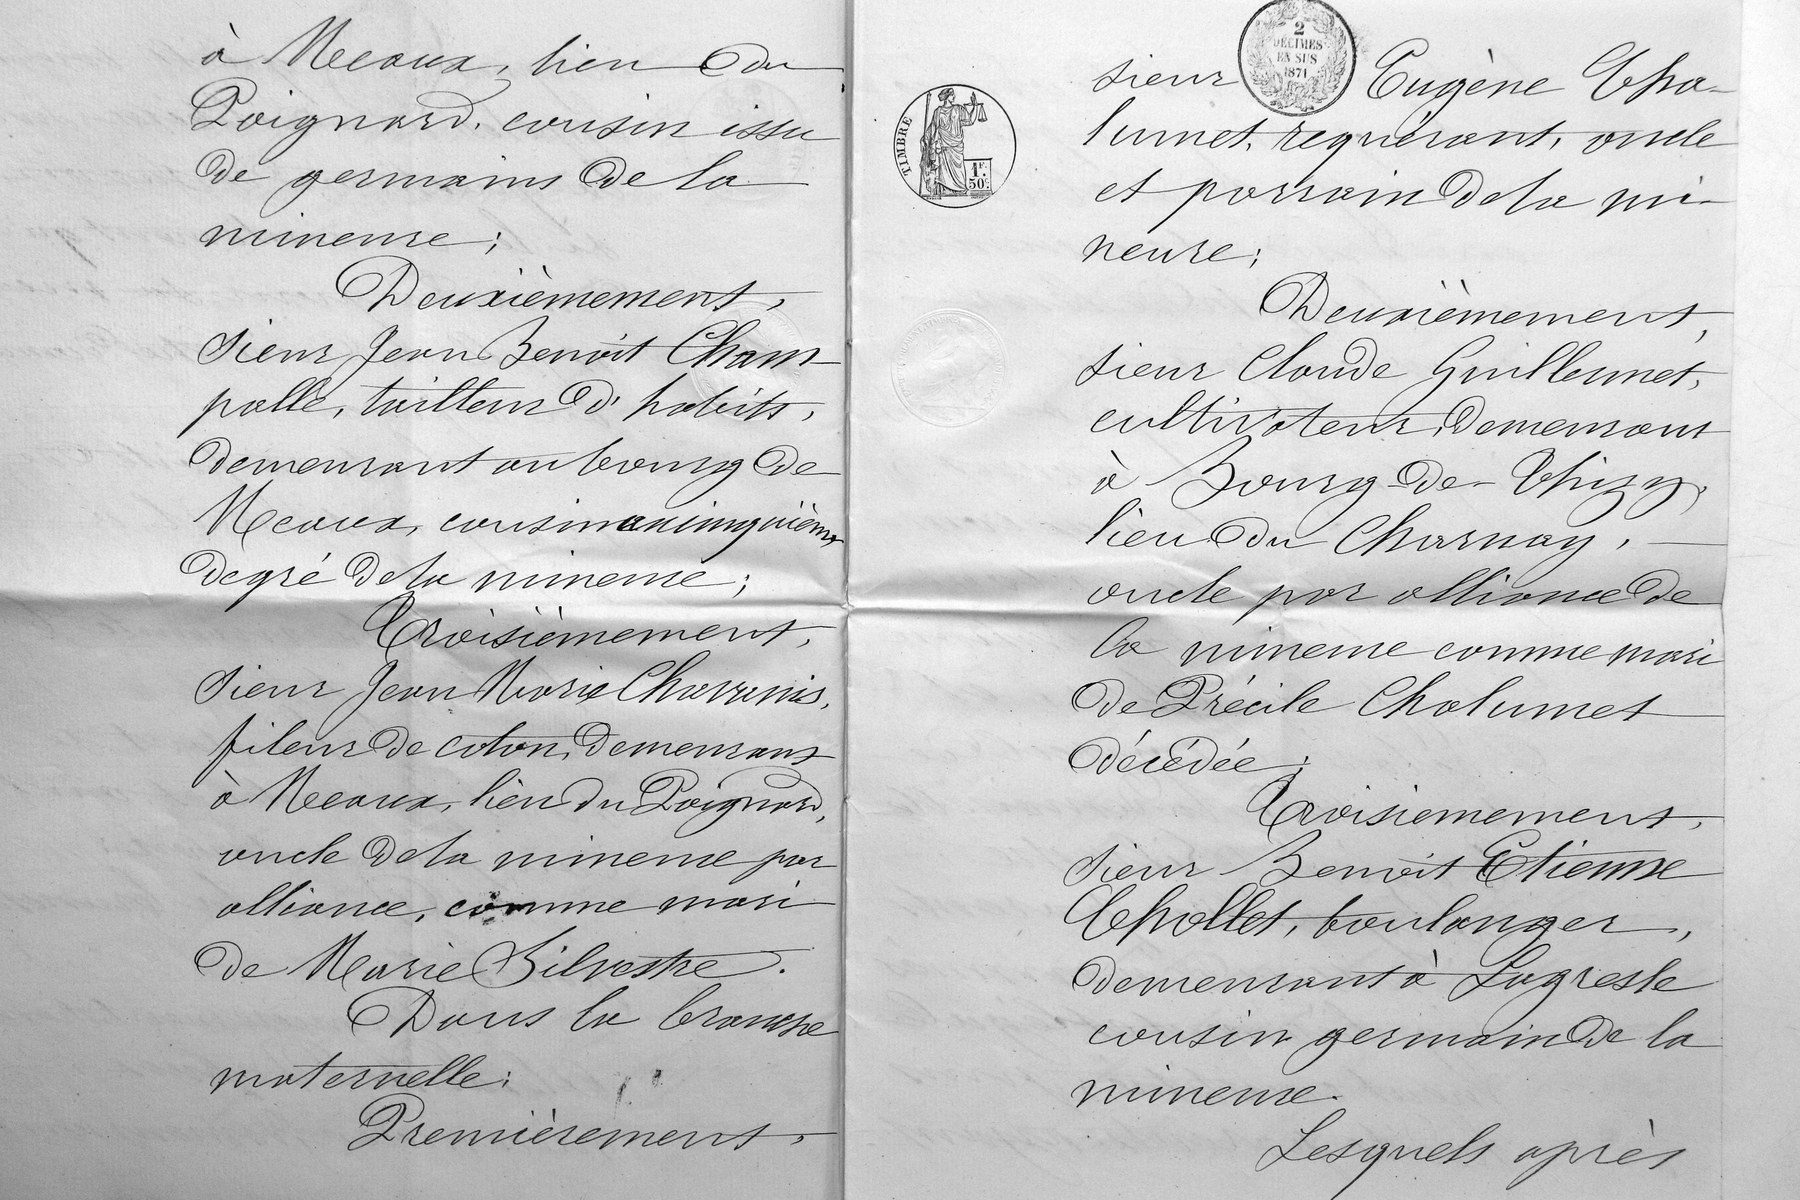 à Meaux, lieu du
Poignard, cousin issu
de germains de la
mineure;
Deuxièmement,
sieur Jean Benoit Cham-
palle, tailleur d'habits,
demeurant au bourg de
Meaux, cousin au cinquième
degré de la mineure;
Troisièmement,
sieur Jean Marie Chavanis,
fileur de coton, demeurant
à Meaux, lieu du Poignard,
oncle de la mineure par
alliance, comme mari
de Marie Silvestre.
Dans la branche
maternelle:
Premièrement,
TIMBRE
1F.
50c.
2
DÉCIMES
EN SUS
1871
sieur Eugène Cha-
lumet, requérant, oncle
et parrain de la mi-
neure;
Deuxièmement,
sieur Claude Guillermet,
cultivateur, demeurant
à Bourg-de-Thizy,
lieu du Charnay,
oncle par alliance de
la mineure comme mari
de Précile Chalumet
décédée;
Troisièmement,
sieur Benoit Etienne
Thollet, boulanger,
demeurant à Lagresle
cousin germain de la
mineure.
Lesquels après